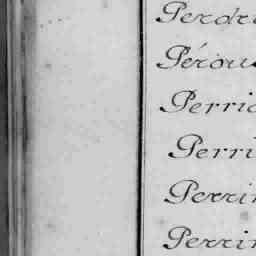 Perdri
Pérous
Perric
Perri
Perrin
Perrin